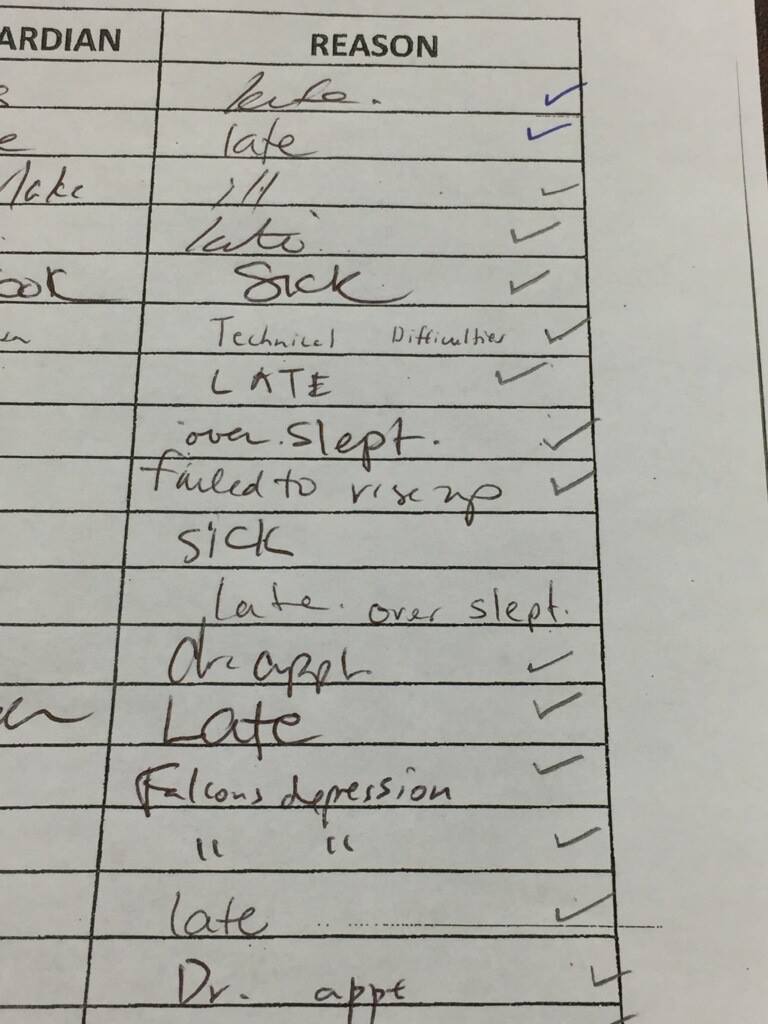 ARDIAN REASON
late.
late
lake ill
late
ook Sick
Technical Difficulties
LATE
over slept.
failed to rise up
sick
Late. over slept.
dr appt
Late
Falcons depression
" "
late
Dr. appt